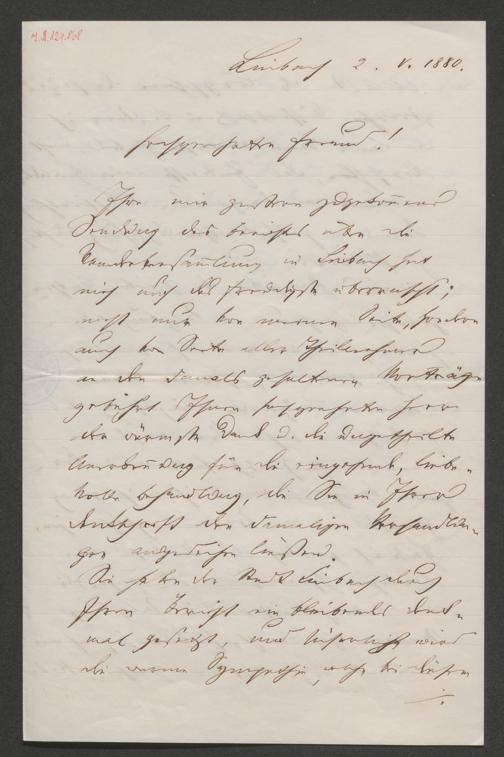 J.N. 124.868
Laibach 2. V. 1880.
Hochgeehrter Freund!
Ihre mir gestern zugekommene
Sendung des Berichts über die
Wanderversammlung in Laibach hat
mich auf das freudigste überrascht;
nicht nur von meiner Seite, sondern
auch von Seite aller Theilnehmer
an den damals gehaltenen Vorträgen
gebührt Ihnen hochgeehrter Herr
der wärmste Dank u. die ungetheilte
Anerkennung für die eingehende, liebe-
volle Behandlung, die Sie in Ihrer
Denkschrift den damaligen Verhandlun-
gen angedeihen ließen.
Sie haben der Stadt Laibach durch
Ihren Bericht ein bleibendes Denk-
mal gesetzt, und sicherlich wird
die warme Sympathie, welche bei diesen
./.